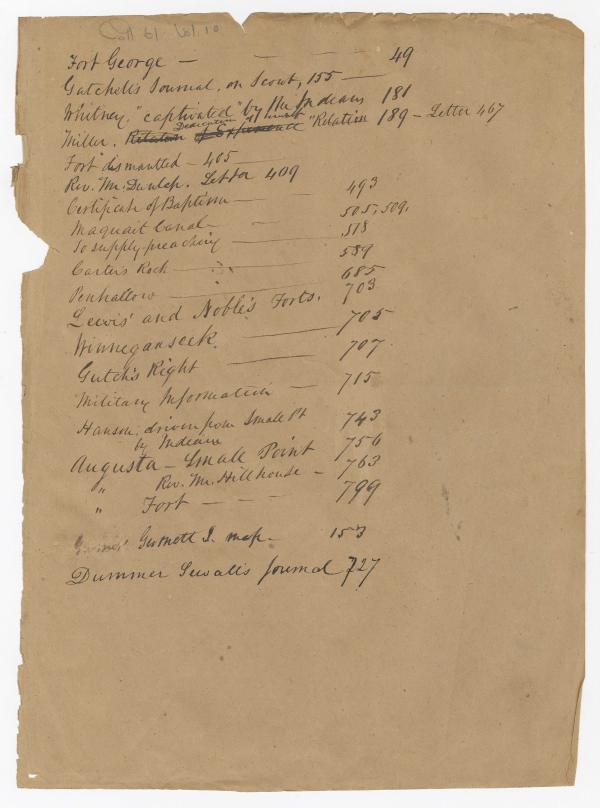 Coll 61 Vol. 10
Fort George — 49
Gatchell's Journal, on Scout, 155 —
Whitney, "captivated" by the Indians 181
Dedication
Miller. "Relation 189 — Letter 467
Fort dismantled — 405 —
Rev. Mr. Dunlap. Letter 409
Certificate of Baptism — 493
Maquait Canal — 505, 509.
To supply preaching — 518
Carter's Rock — 589
Penhallow — 685
Lewis' and Noble's Forts. 703
Winneganseek. — 705
Gutch's Right — 707
Military Information — 715
Hanson; driven from Small Pt
by Indians 743
Augusta — Small Point 756
" Rev. Mr. Hillhouse — 763
" Fort — 799
Gurnett I. map — 153
Dummer Sewall's Journal 727